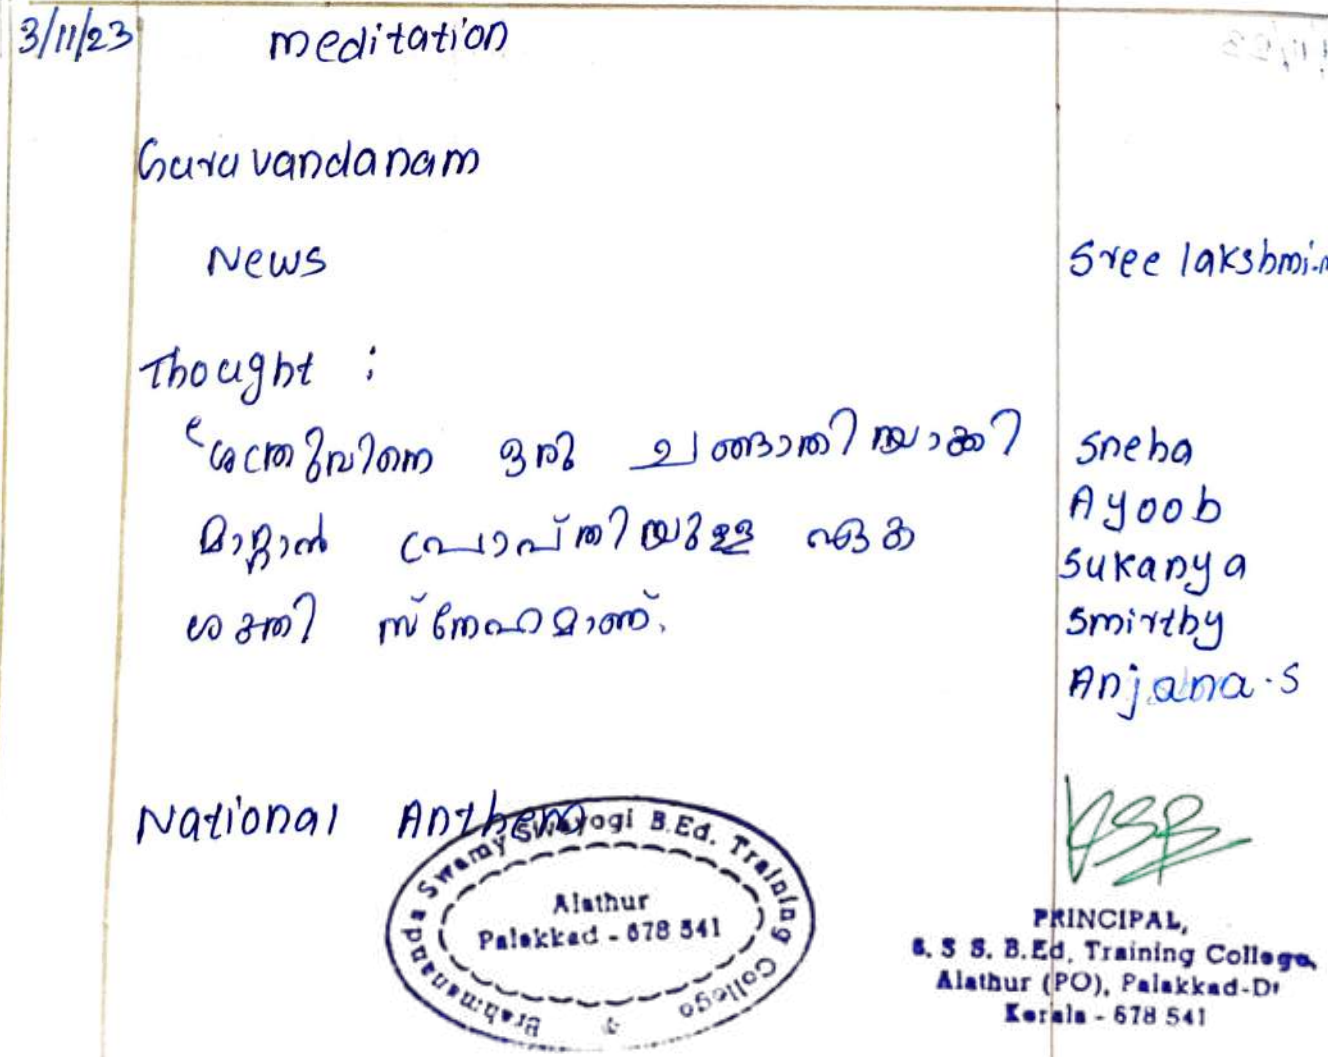 3/11/23 meditation
Guruvandanam
News Sree lakshmi.
Thought :
"ശത്രുവിനെ ഒരു ചങ്ങാതിയാക്കി Sneha
മാറ്റാൻ പ്രാപ്തിയുള്ള ഏക Ayoob
Sukanya
ശക്തി സ്നേഹമാണ്. Smirthy
Anjana.S
National Anthem
Brahmananda Swamy Sivayogi B.Ed. Training College
Alathur
Palakkad - 678 541
PRINCIPAL,
B. S S. B.Ed. Training College,
Alathur (PO), Palakkad-Dt
Kerala - 678 541